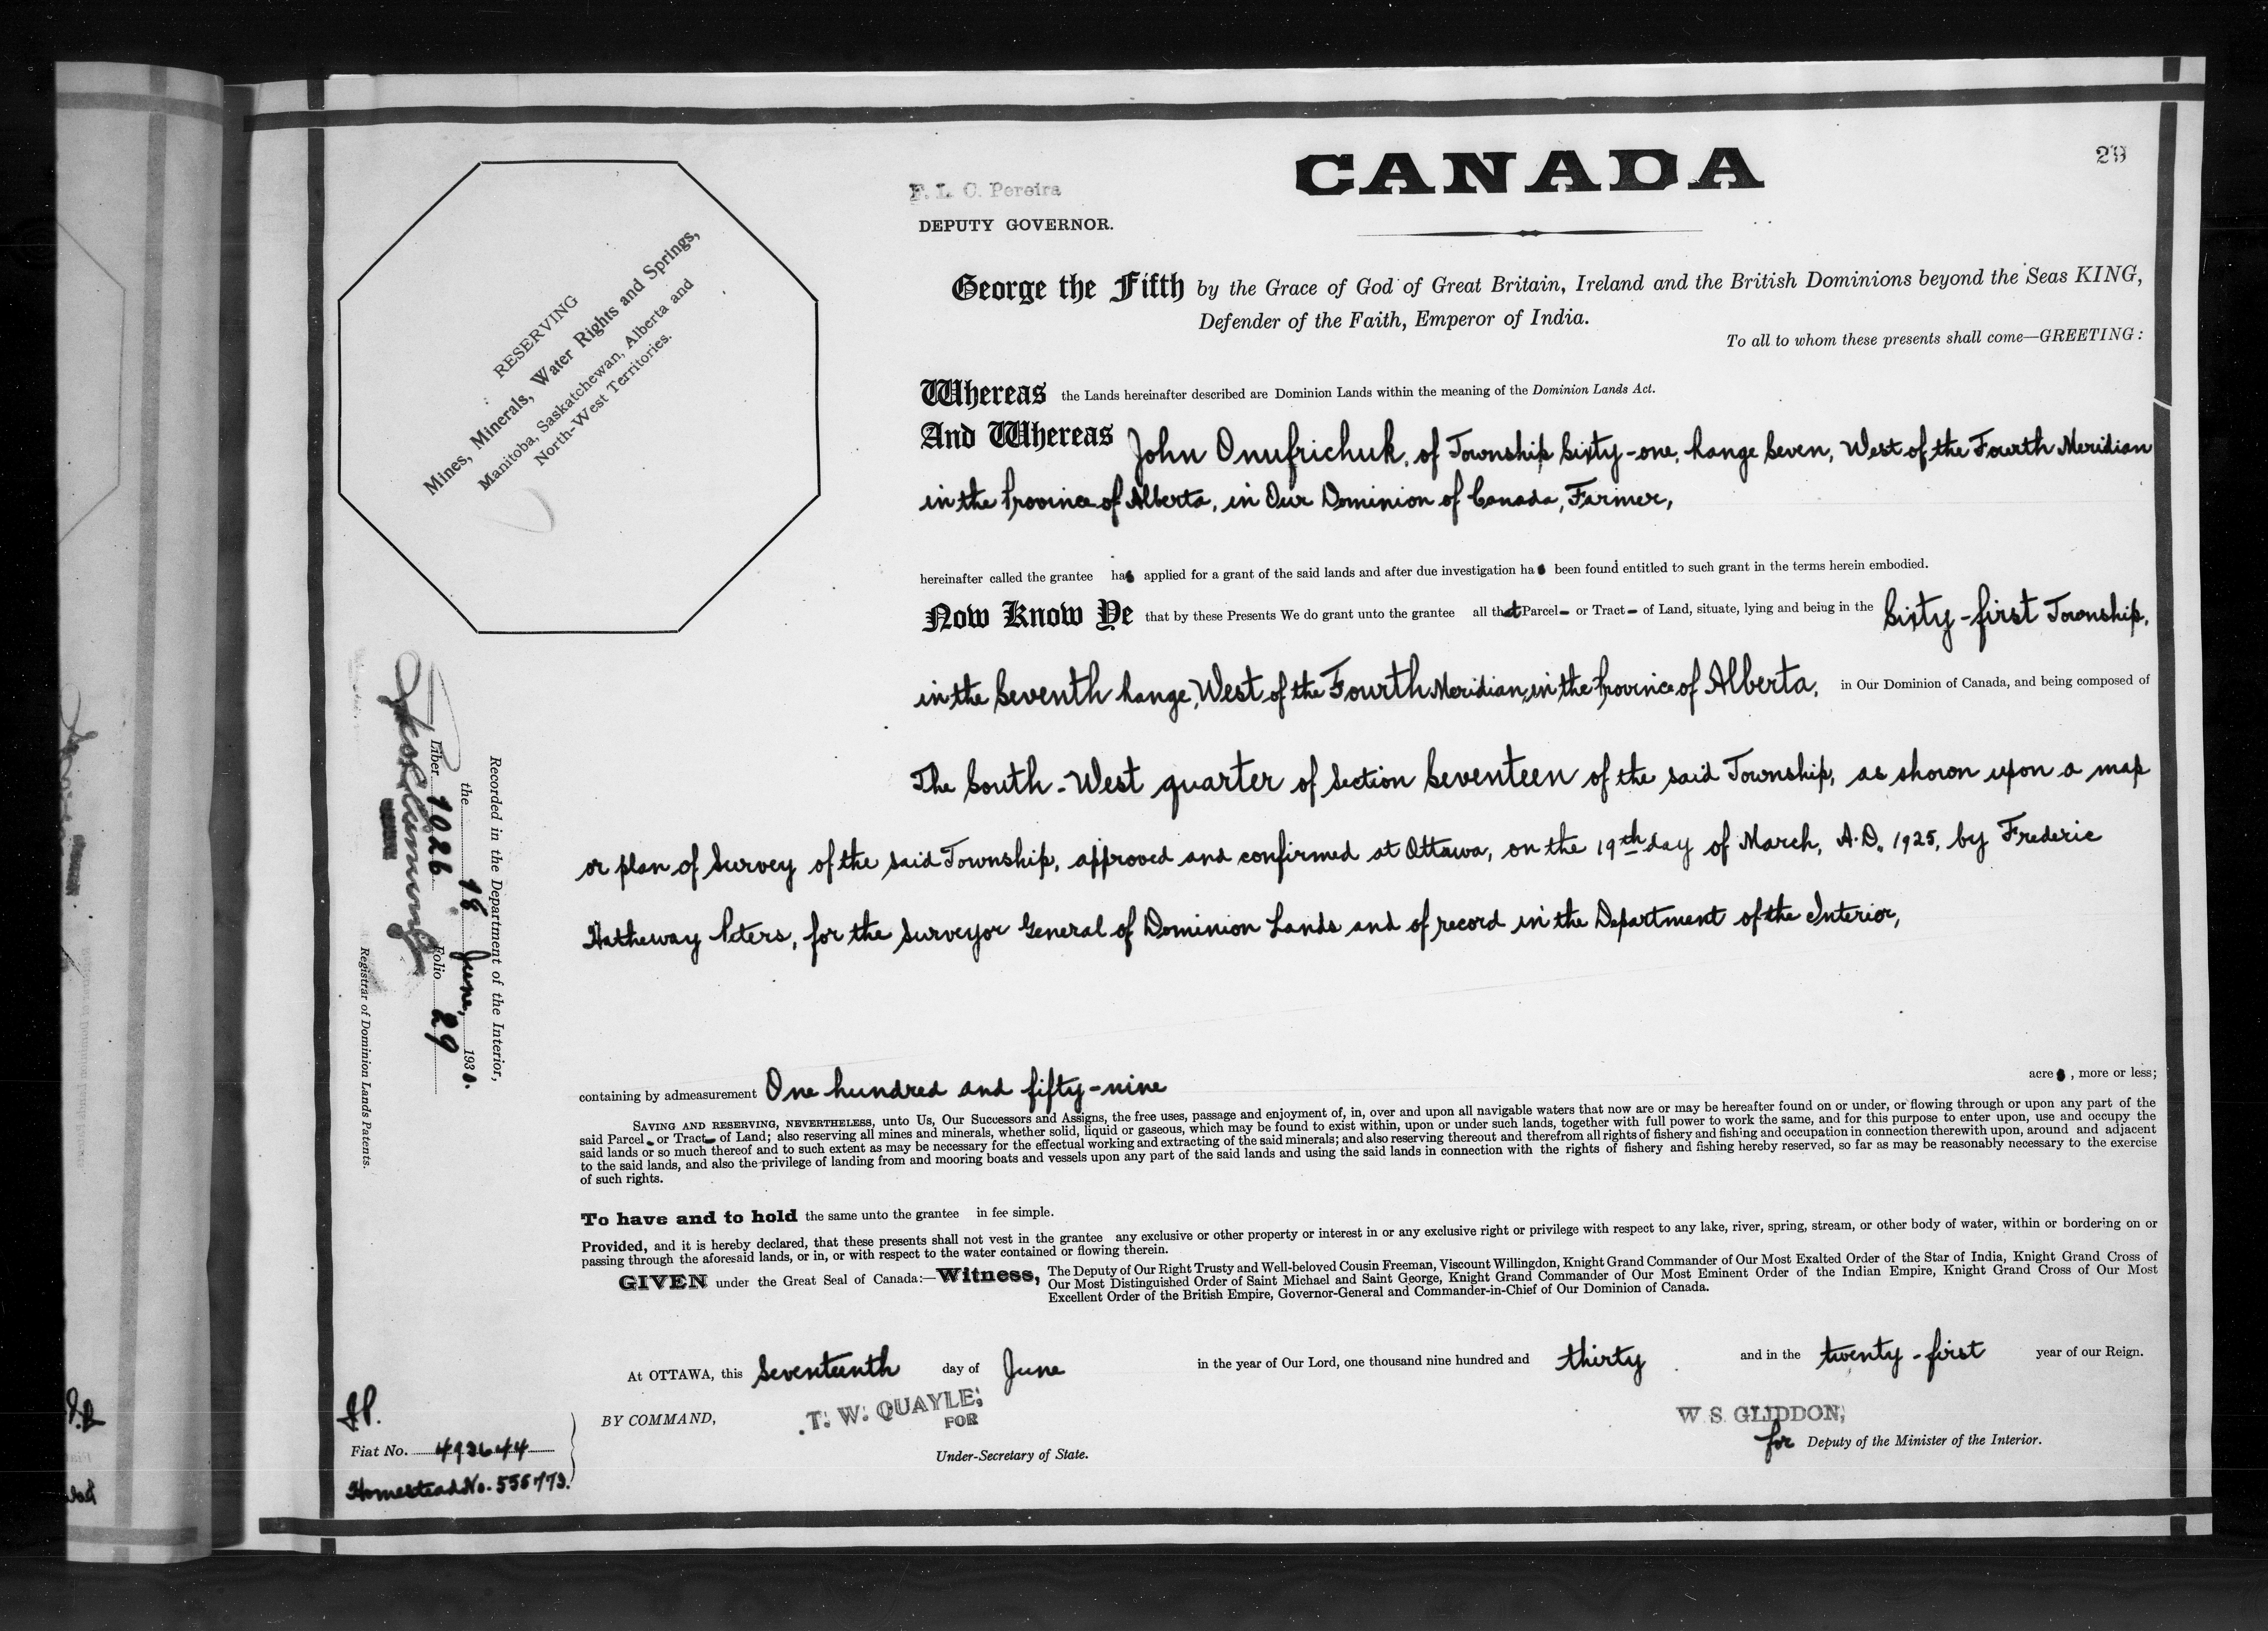 CANADA
29
F. L. C. Pereira
DEPUTY GOVERNOR.
RESERVING
Mines, Minerals, Water Rights and Springs,
Manitoba, Saskatchewan, Alberta and
North-West Territories.
George the Fifth by the Grace of God of Great Britain, Ireland and the British Dominions beyond the Seas KING,
Defender of the Faith, Emperor of India.
To all to whom these presents shall come—GREETING:
Whereas the Lands hereinafter described are Dominion Lands within the meaning of the Dominion Lands Act.
And Whereas John Onufrichuk, of Township Sixty-one, Range Seven, West of the Fourth Meridian
in the Province of Alberta, in Our Dominion of Canada, Farmer,
hereinafter called the grantee has applied for a grant of the said lands and after due investigation has been found entitled to such grant in the terms herein embodied.
Now Know Ye that by these Presents We do grant unto the grantee all that Parcel- or Tract- of Land, situate, lying and being in the Sixty-first Township,
in the Seventh Range, West of the Fourth Meridian, in the Province of Alberta, in Our Dominion of Canada, and being composed of
The South-West quarter of Section Seventeen of the said Township, as shown upon a map
or plan of Survey of the said Township, approved and confirmed at Ottawa, on the 19th day of March, A.D. 1925, by Frederic
Hatheway Peters, for the Surveyor General of Dominion Lands and of record in the Department of the Interior,
containing by admeasurement One hundred and fifty-nine acres, more or less;
SAVING AND RESERVING, NEVERTHELESS, unto Us, Our Successors and Assigns, the free uses, passage and enjoyment of, in, over and upon all navigable waters that now are or may be hereafter found on or under, or flowing through or upon any part of the
said Parcel- or Tract- of Land; also reserving all mines and minerals, whether solid, liquid or gaseous, which may be found to exist within, upon or under such lands, together with full power to work the same, and for this purpose to enter upon, use and occupy the
said lands or so much thereof and to such extent as may be necessary for the effectual working and extracting of the said minerals; and also reserving thereout and therefrom all rights of fishery and fishing and occupation in connection therewith upon, around and adjacent
to the said lands, and also the privilege of landing from and mooring boats and vessels upon any part of the said lands and using the said lands in connection with the rights of fishery and fishing hereby reserved, so far as may be reasonably necessary to the exercise
of such rights.
To have and to hold the same unto the grantee in fee simple.
Provided, and it is hereby declared, that these presents shall not vest in the grantee any exclusive or other property or interest in or any exclusive right or privilege with respect to any lake, river, spring, stream, or other body of water, within or bordering on or
passing through the aforesaid lands, or in, or with respect to the water contained or flowing therein.
GIVEN under the Great Seal of Canada:—Witness, The Deputy of Our Right Trusty and Well-beloved Cousin Freeman, Viscount Willingdon, Knight Grand Commander of Our Most Exalted Order of the Star of India, Knight Grand Cross of
Our Most Distinguished Order of Saint Michael and Saint George, Knight Grand Commander of Our Most Eminent Order of the Indian Empire, Knight Grand Cross of Our Most
Excellent Order of the British Empire, Governor-General and Commander-in-Chief of Our Dominion of Canada.
At OTTAWA, this Seventeenth day of June in the year of Our Lord, one thousand nine hundred and thirty and in the twenty-first year of our Reign.
BY COMMAND,
T. W. QUAYLE,
FOR
Under-Secretary of State.
W. S. GLIDDON,
for Deputy of the Minister of the Interior.
Fiat No. 492644
Homestead No. 555773.
Recorded in the Department of the Interior,
the 18 June, 1930.
Liber 1026 Folio 29
Registrar of Dominion Lands Patents.